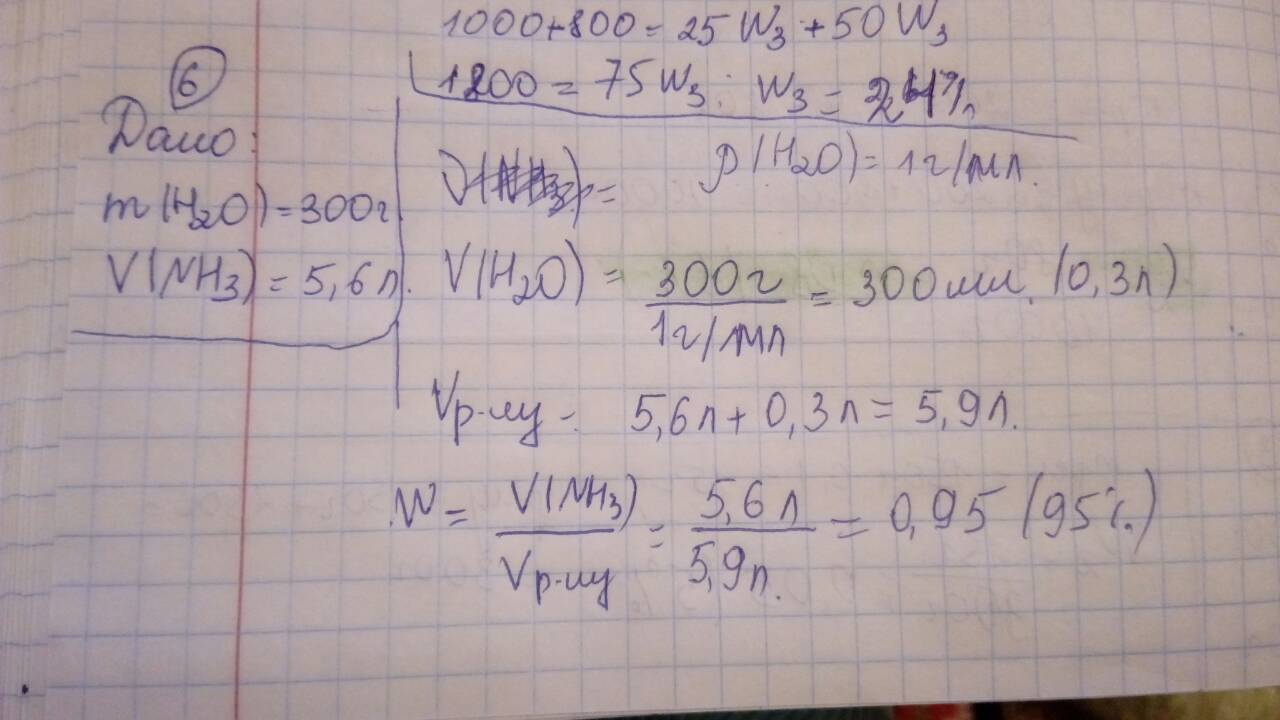 1000+800 = 25 W₃ + 50 W₃
1800 = 75 W₃ ; W₃ = 24%
⑥
Дано:
m(H₂O) = 300г
V(NH₃) = 5,6 л.
ρ(H₂O) = 1г/мл.
V(H₂O) = 300г / 1г/мл = 300мл. (0,3л)
Vр-ну - 5,6л + 0,3л = 5,9л.
W = V(NH₃) / Vр-ну = 5,6л / 5,9л. = 0,95 (95%)